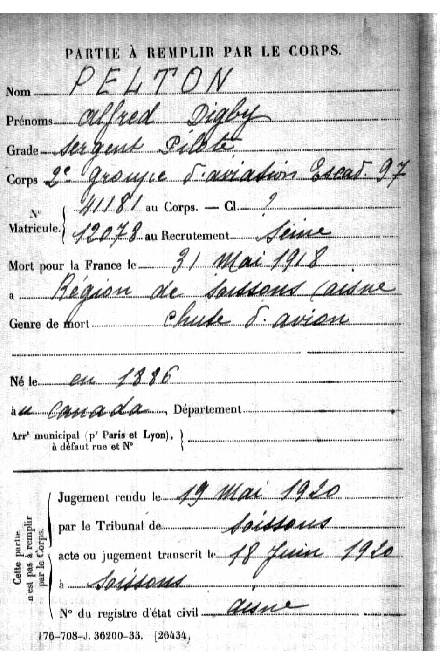 PARTIE À REMPLIR PAR LE CORPS.
Nom PELTON
Prénoms Alfred Digby
Grade Sergent Pilote
Corps 2e groupe d'aviation Escad. 97
N° Matricule. { 41181 au Corps. — Cl. ?
12078 au Recrutement Seine
Mort pour la France le 31 Mai 1918
à Région de Soissons (Aisne
Genre de mort chute d'avion
Né le en 1886
àu Canada, Département
Arrt municipal (pr Paris et Lyon), }
à défaut rue et N°
Cette partie n'est pas à remplir par le Corps.
Jugement rendu le 19 Mai 1920
par le Tribunal de Soissons
acte ou jugement transcrit le 18 Juin 1920
à Soissons
N° du registre d'état civil Aisne
176-708-J. 36200-33. [26434]